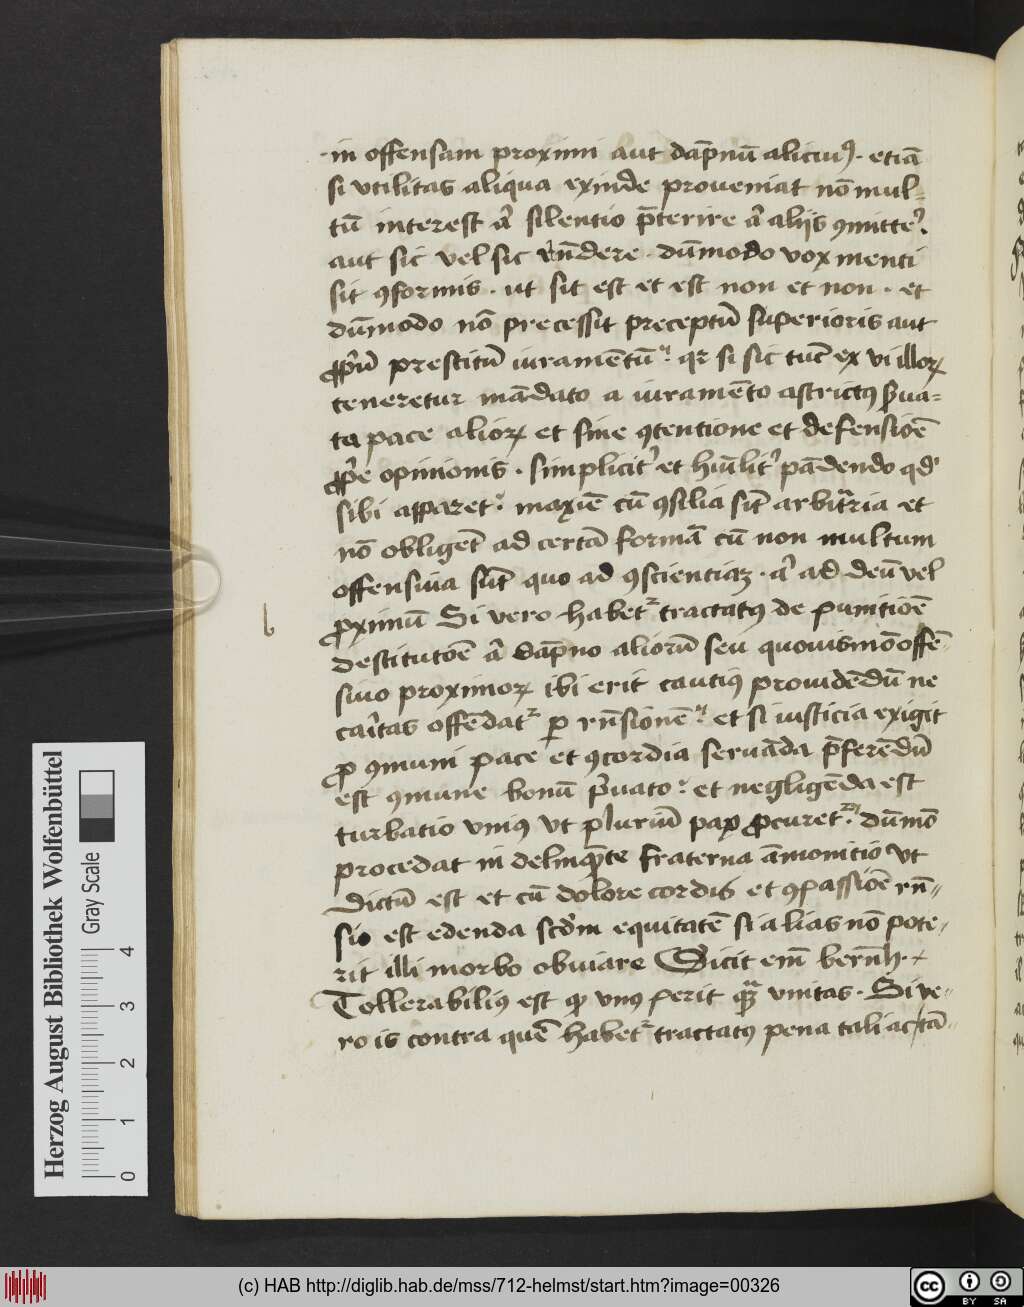 in offensam proximi aut dāpnū alicuiꝰ · etiā
si vtilitas aliqua exinde proueniat nō mul-
tū interest āͥ silentio p̄terire āͥ aliis ꝯmitte͛
aut sic vel sic rn̄dere · dūmodo vox menti
sit ꝯformis · ut sit est et est non et non · et
dūmodo nō precessit preceptū superioris aut
ꝓpͥū prestitū iuramētū qꝛ si sic tūc ex vi illoꝝ
teneretur mādato a iuramēto astrictꝰ s̄ua-
ta pace alioꝝ et sine ꝯtentione et defensiōe
ꝓpͥe opinionis · simplicit͛ et hūilit͛ pādendo qd͛
sibi apparet · maxīe cū ꝯsilia sūt arbitͣria et
nō obligēt ad certā formā cū non multum
offensiua sūt quo ad ꝯscientiaꝫ · āͥ ad deū vel
ꝓximū Si vero habetᷣ tractatꝰ de punitiōe
destitutōe āͥ dāpno aliorū seu quouismō offē-
siuo proximoꝝ ibi erit cautiꝰ prouidēdū ne
caͥtas offēdatᷣ ꝑ rn̄sionē et si iusticia exigit
ꝓ ꝯmuni pace et ꝯcordia seruāda p̄ferēdū
est ꝯmune bonū pͥuato et negligēda est
turbatio vniꝰ vt pluriū pax ꝓcuretᷣ · dūmō
procedat in delinquēte fraterna āmonitio vt
dictū est et cū dolore cordis et ꝯpassiōe rn̄-
sio est edenda scd̄m equitatē si alias nō pote-
rit illi morbo obuiare Dicit em̄ bern̄h ·
Tollerabiliꝰ est qͥ vnꝰ perit qͣꝫ vnitas · Si ve-
ro is contra quē habetᷣ tractatꝰ pena tali ac tā-
b
Herzog August Bibliothek Wolfenbüttel
Gray Scale
0 1 2 3 4
(c) HAB http://diglib.hab.de/mss/712-helmst/start.htm?image=00326
cc BY SA